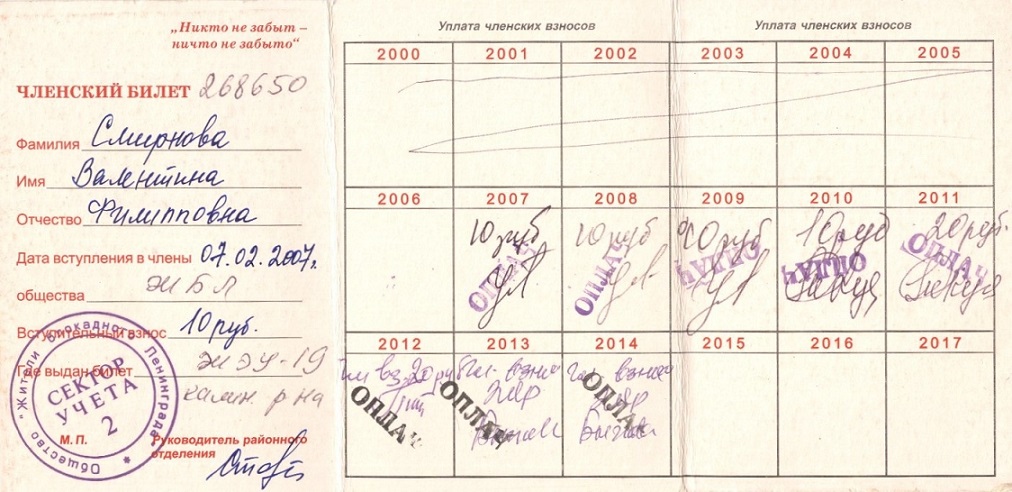 „Никто не забыт –
ничто не забыто“
ЧЛЕНСКИЙ БИЛЕТ 268650
Фамилия Смирнова
Имя Валентина
Отчество Филипповна
Дата вступления в члены 07.02.2007г.
общества ЖБЛ
Вступительный взнос 10 руб.
Где выдан билет ЖЭУ-19
Калин. р-на
Общество "Жители блокадного Ленинграда"
СЕКТОР
УЧЕТА
2
М. П.
Руководитель районного
отделения
Уплата членских взносов
Уплата членских взносов
2000 2001 2002 2003 2004 2005
2006 2007 2008 2009 2010 2011
10 руб 10 руб 10 руб 10 руб 20 руб.
2012 2013 2014 2015 2016 2017
чл. взнос чл. взнос
ОПЛАЧ ОПЛАЧ ОПЛАЧ